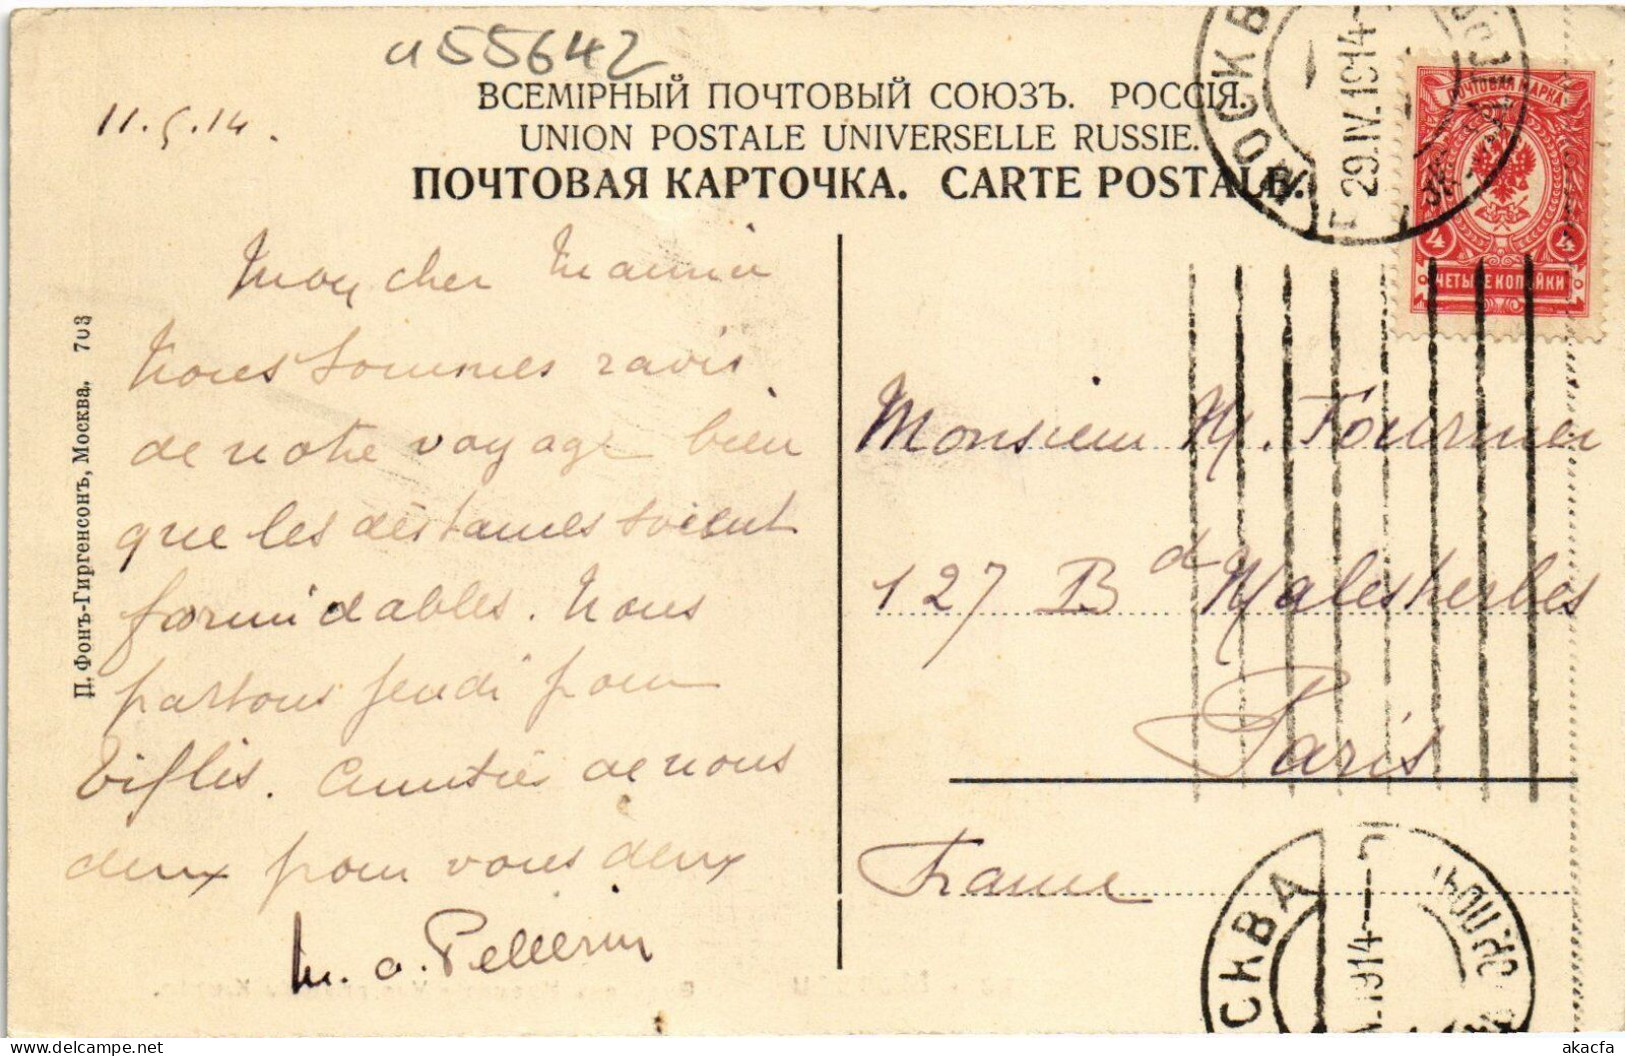 a55642
11.5.14.
ВСЕМІРНЫЙ ПОЧТОВЫЙ СОЮЗЪ. РОССІЯ.
UNION POSTALE UNIVERSELLE RUSSIE.
ПОЧТОВАЯ КАРТОЧКА. CARTE POSTALE.
МОСКВА
29.IV.1914
ПОЧТОВАЯ МАРКА
4 4
ЧЕТЫРЕ КОПѢЙКИ
П. Фонъ-Гиргенсонъ, Москва. 703
Mon cher
Nous sommes ravis
de notre voyage bien
que les distances soient
formidables. Nous
partons jeudi pour
Tiflis. Amitiés de nous
deux pour vous deux
M. O. Pellerin
Monsieur M. Fournier
127 Bd Malesherbes
Paris
France
СКВА
1914
akacfa